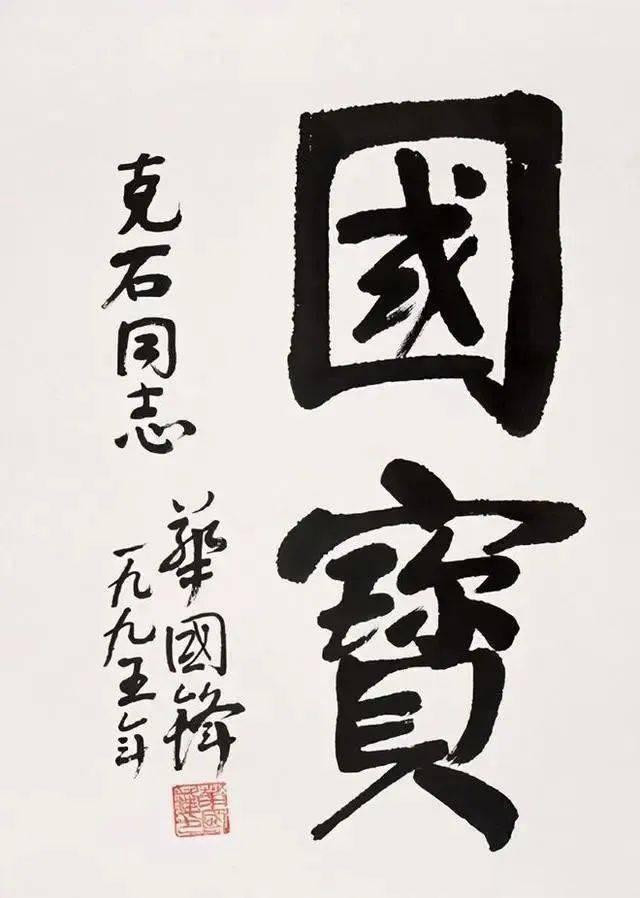 國寳
克石同志
華國鋒
一九九五年